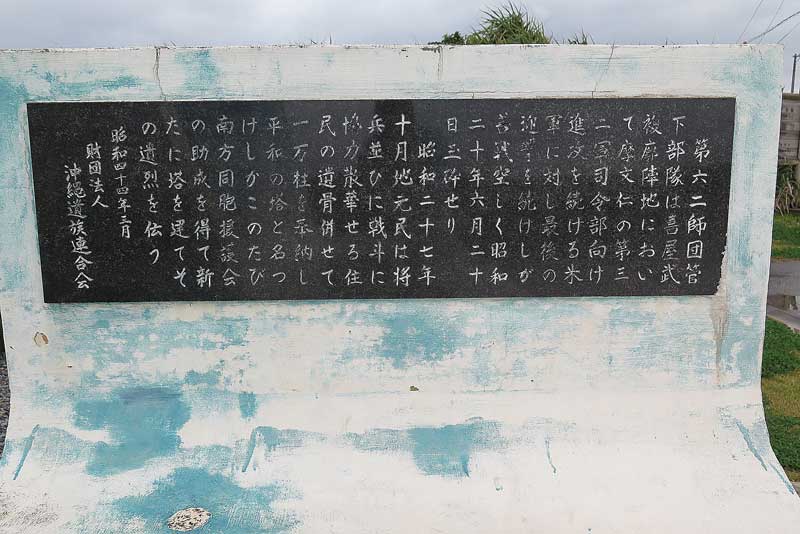 第六二師団管
下部隊は喜屋武
複廓陣地におい
て摩文仁の第三
二軍司令部向け
進攻を続ける米
軍に対し最後の
迎撃を続けしが
苦戦空しく昭和
二十年六月二十
日玉砕せり
昭和二十七年
十月地元民は将
兵並びに戦斗に
協力散華せる住
民の遺骨併せて
一万柱を奉納し
平和の塔と名つ
けしがこのたび
南方同胞援護会
の助成を得て新
たに塔を建てそ
の遺烈を伝う
昭和四十四年三月
財団法人
沖縄遺族連合会